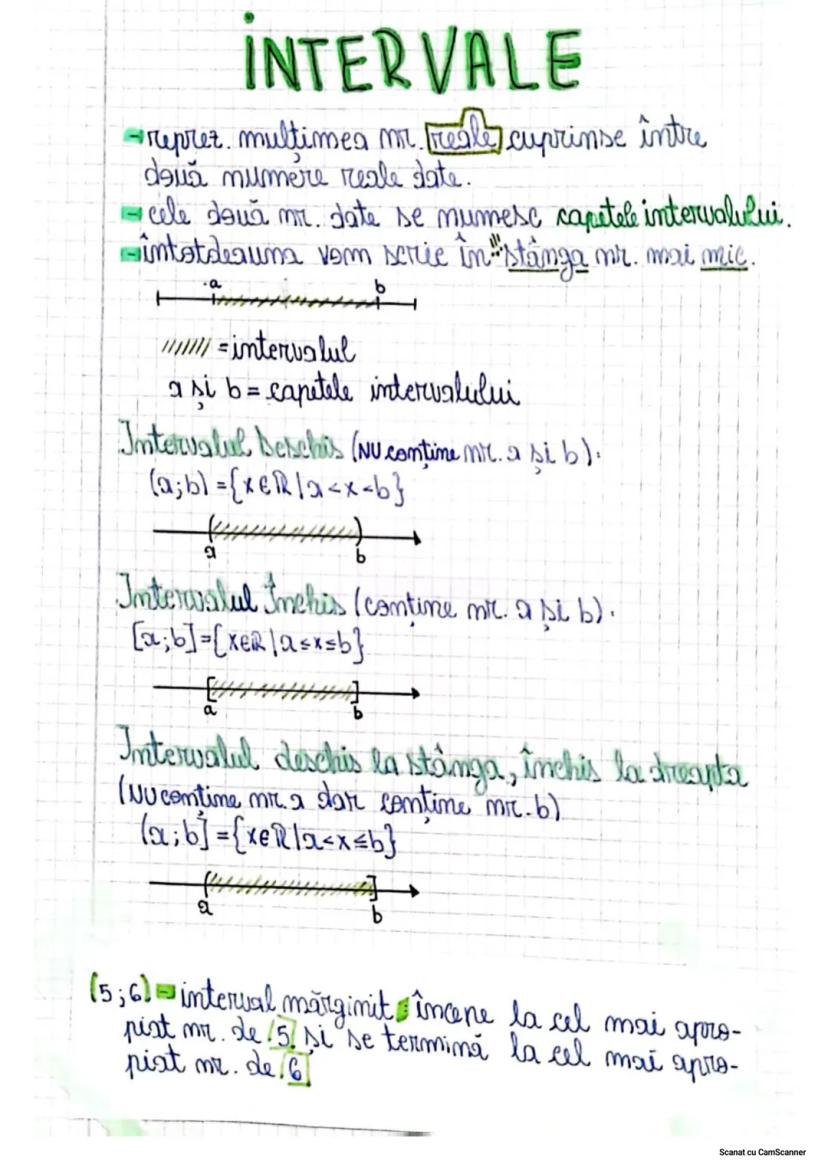 INTERVALE
- reprez. mulțimea nr. reale cuprinse între
două numere reale date.
- cele două nr. date se numesc capetele intervalului.
- întotdeauna vom scrie în stânga nr. mai mic.
a b
////// = intervalul
a și b = capetele intervalului
Intervalul Deschis (NU conține nr. a și b).
(a;b) = {x∈ℝ | a<x<b}
a b
Intervalul Închis (conține nr. a și b).
[a;b] = {x∈ℝ | a≤x≤b}
a b
Intervalul deschis la stânga, închis la dreapta
(NU conține nr. a dar conține nr. b)
(a;b] = {x∈ℝ | a<x≤b}
a b
(5;6) - interval mărginit; începe la cel mai apro-
piat nr. de 5 și se termină la cel mai apro-
piat nr. de 6
Scanat cu CamScanner